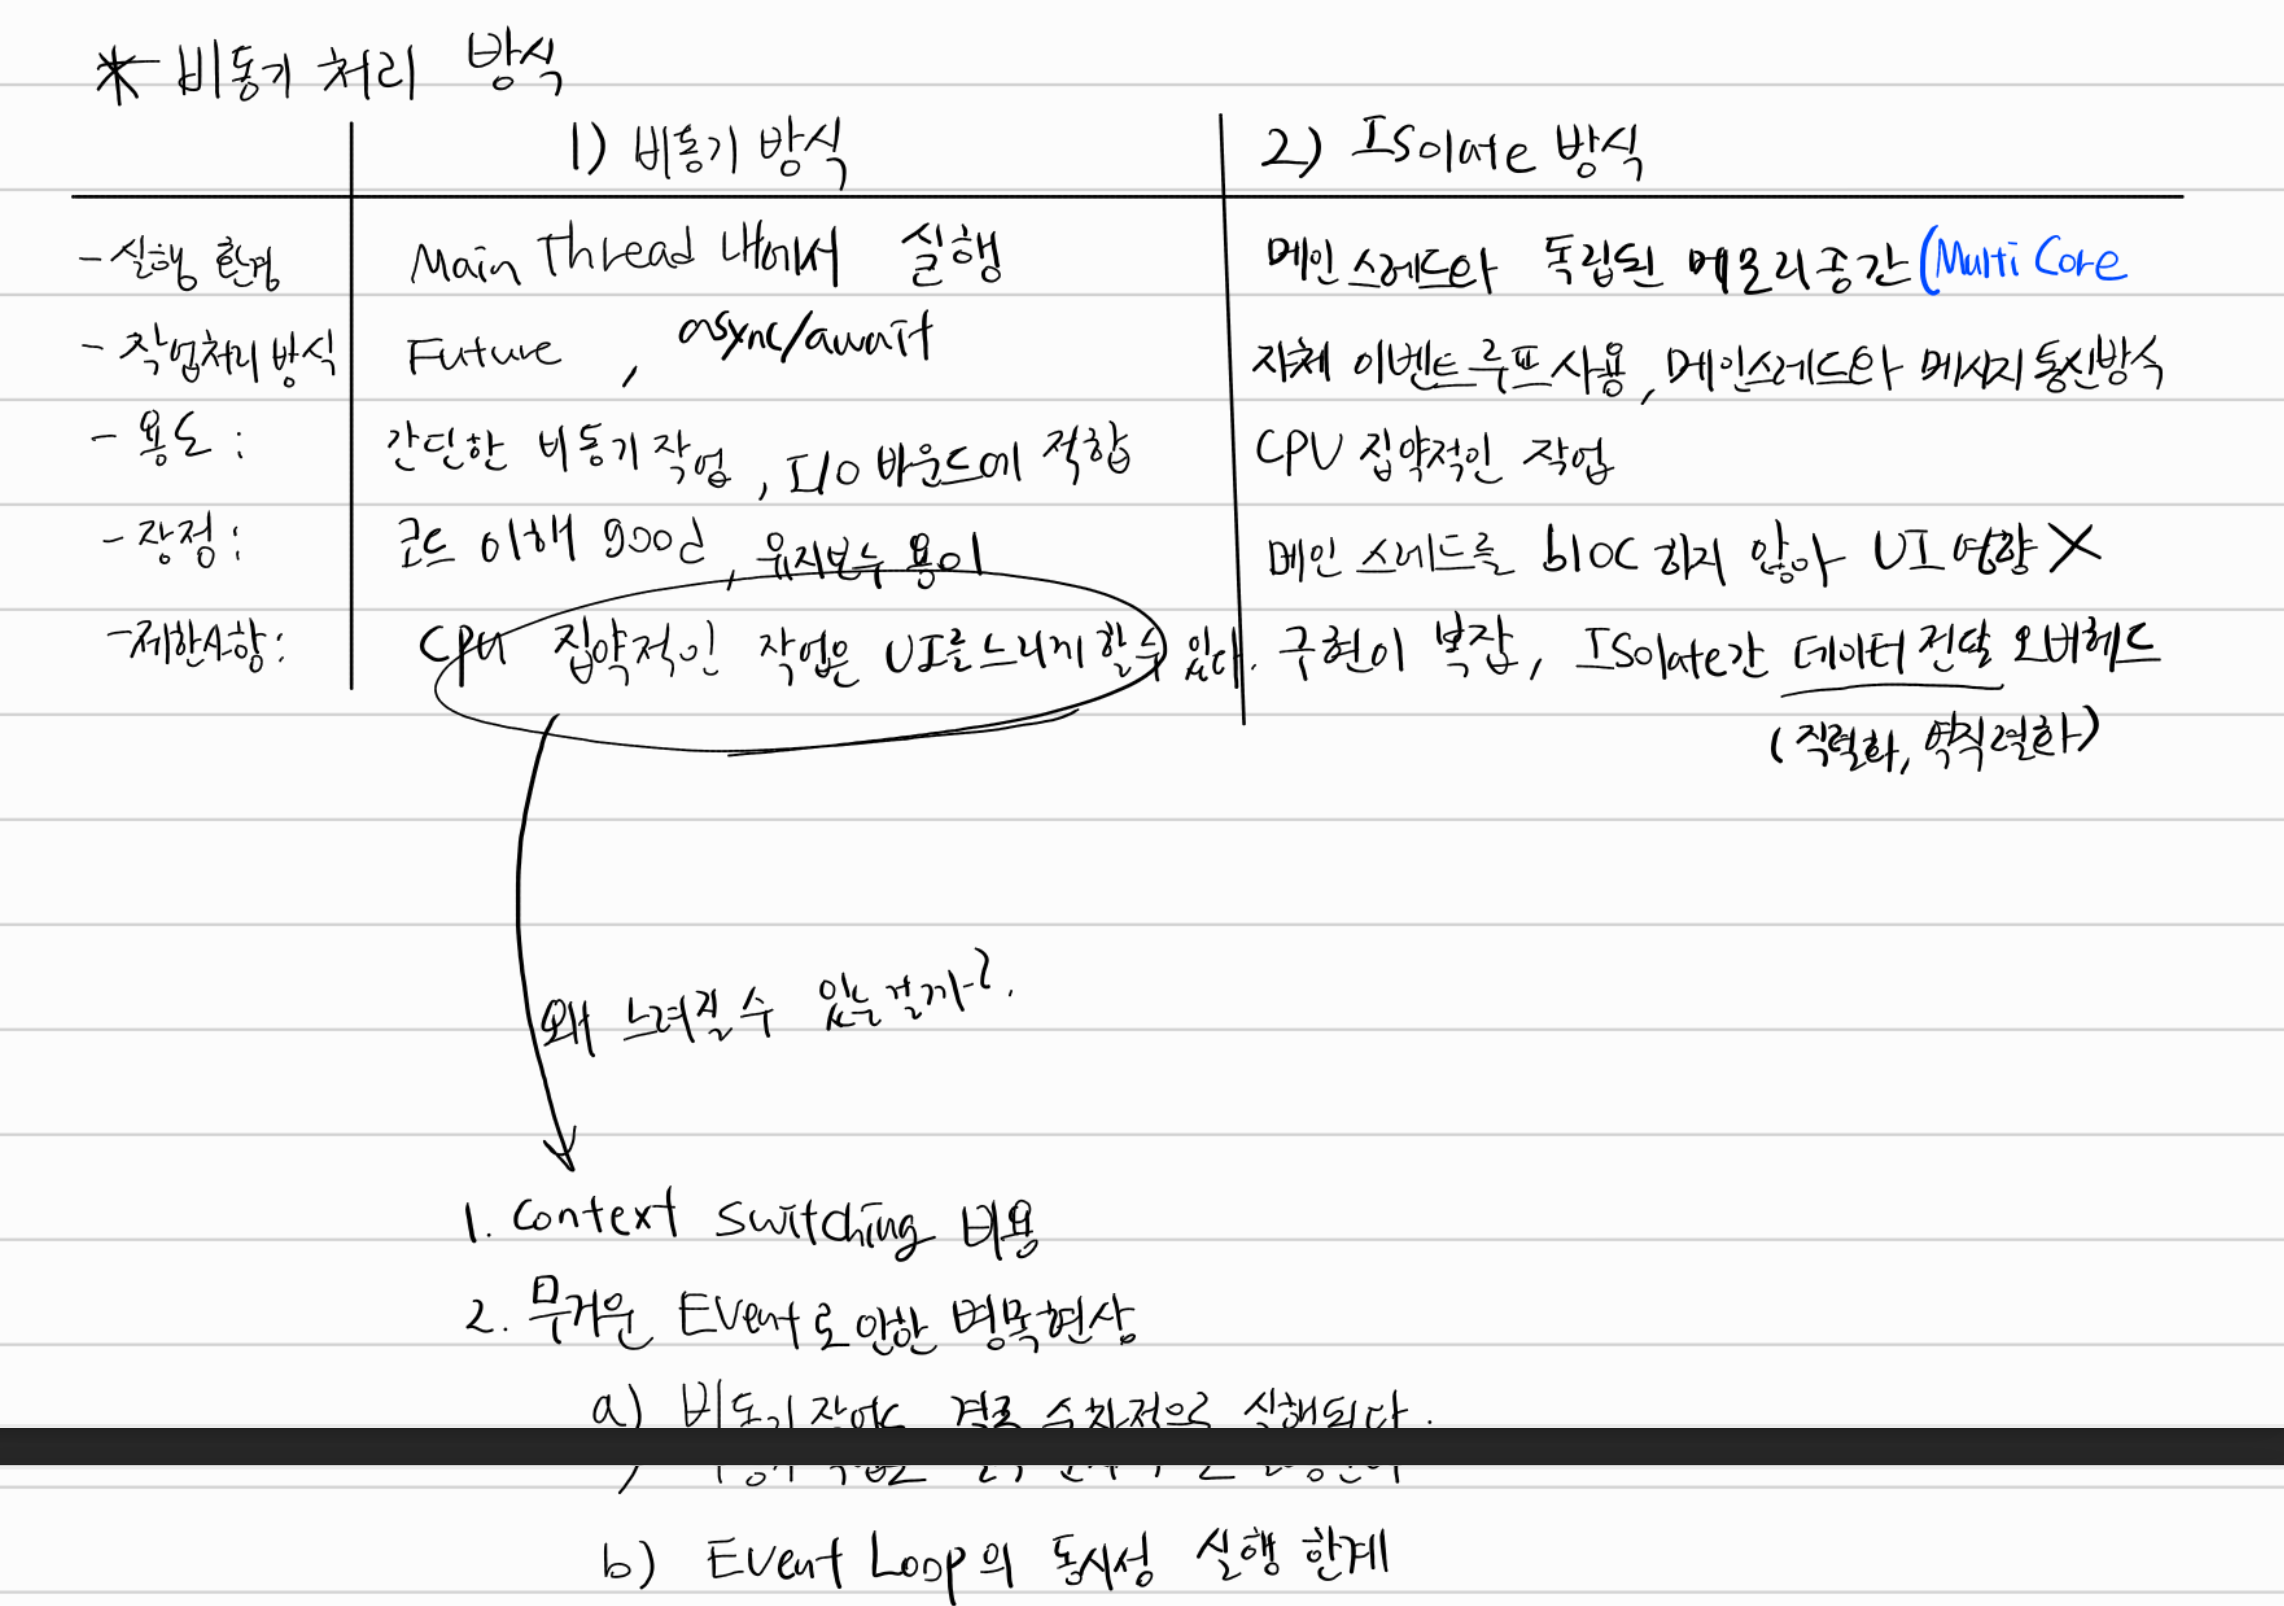 * 비동기 처리 방식
1) 비동기 방식
2) Isolate 방식
- 실행 환경
Main Thread 내에서 실행
메인 스레드와 독립된 메모리공간(Multi Core
- 작업처리 방식
Future , async/await
자체 이벤트 루프 사용, 메인스레드와 메시지 통신방식
- 용도 :
간단한 비동기 작업, I/O 바운드에 적합
CPU 집약적인 작업
- 장점 :
코드 이해 good, 유지보수 용이
메인 스레드를 bloc 하지 않아 UI 영향 X
- 제한사항 :
CPU 집약적인 작업은 UI를 느리게 할 수 있다.
구현이 복잡, Isolate간 데이터 전달 오버헤드
(직렬화, 역직렬화)
왜 느려질 수 있는걸까?.
1. Context switching 비용
2. 무거운 Event로 인한 병목현상
a) 비동기 작업도 결국 순차적으로 실행된다.
b) Event Loop의 동시성 실행 한계